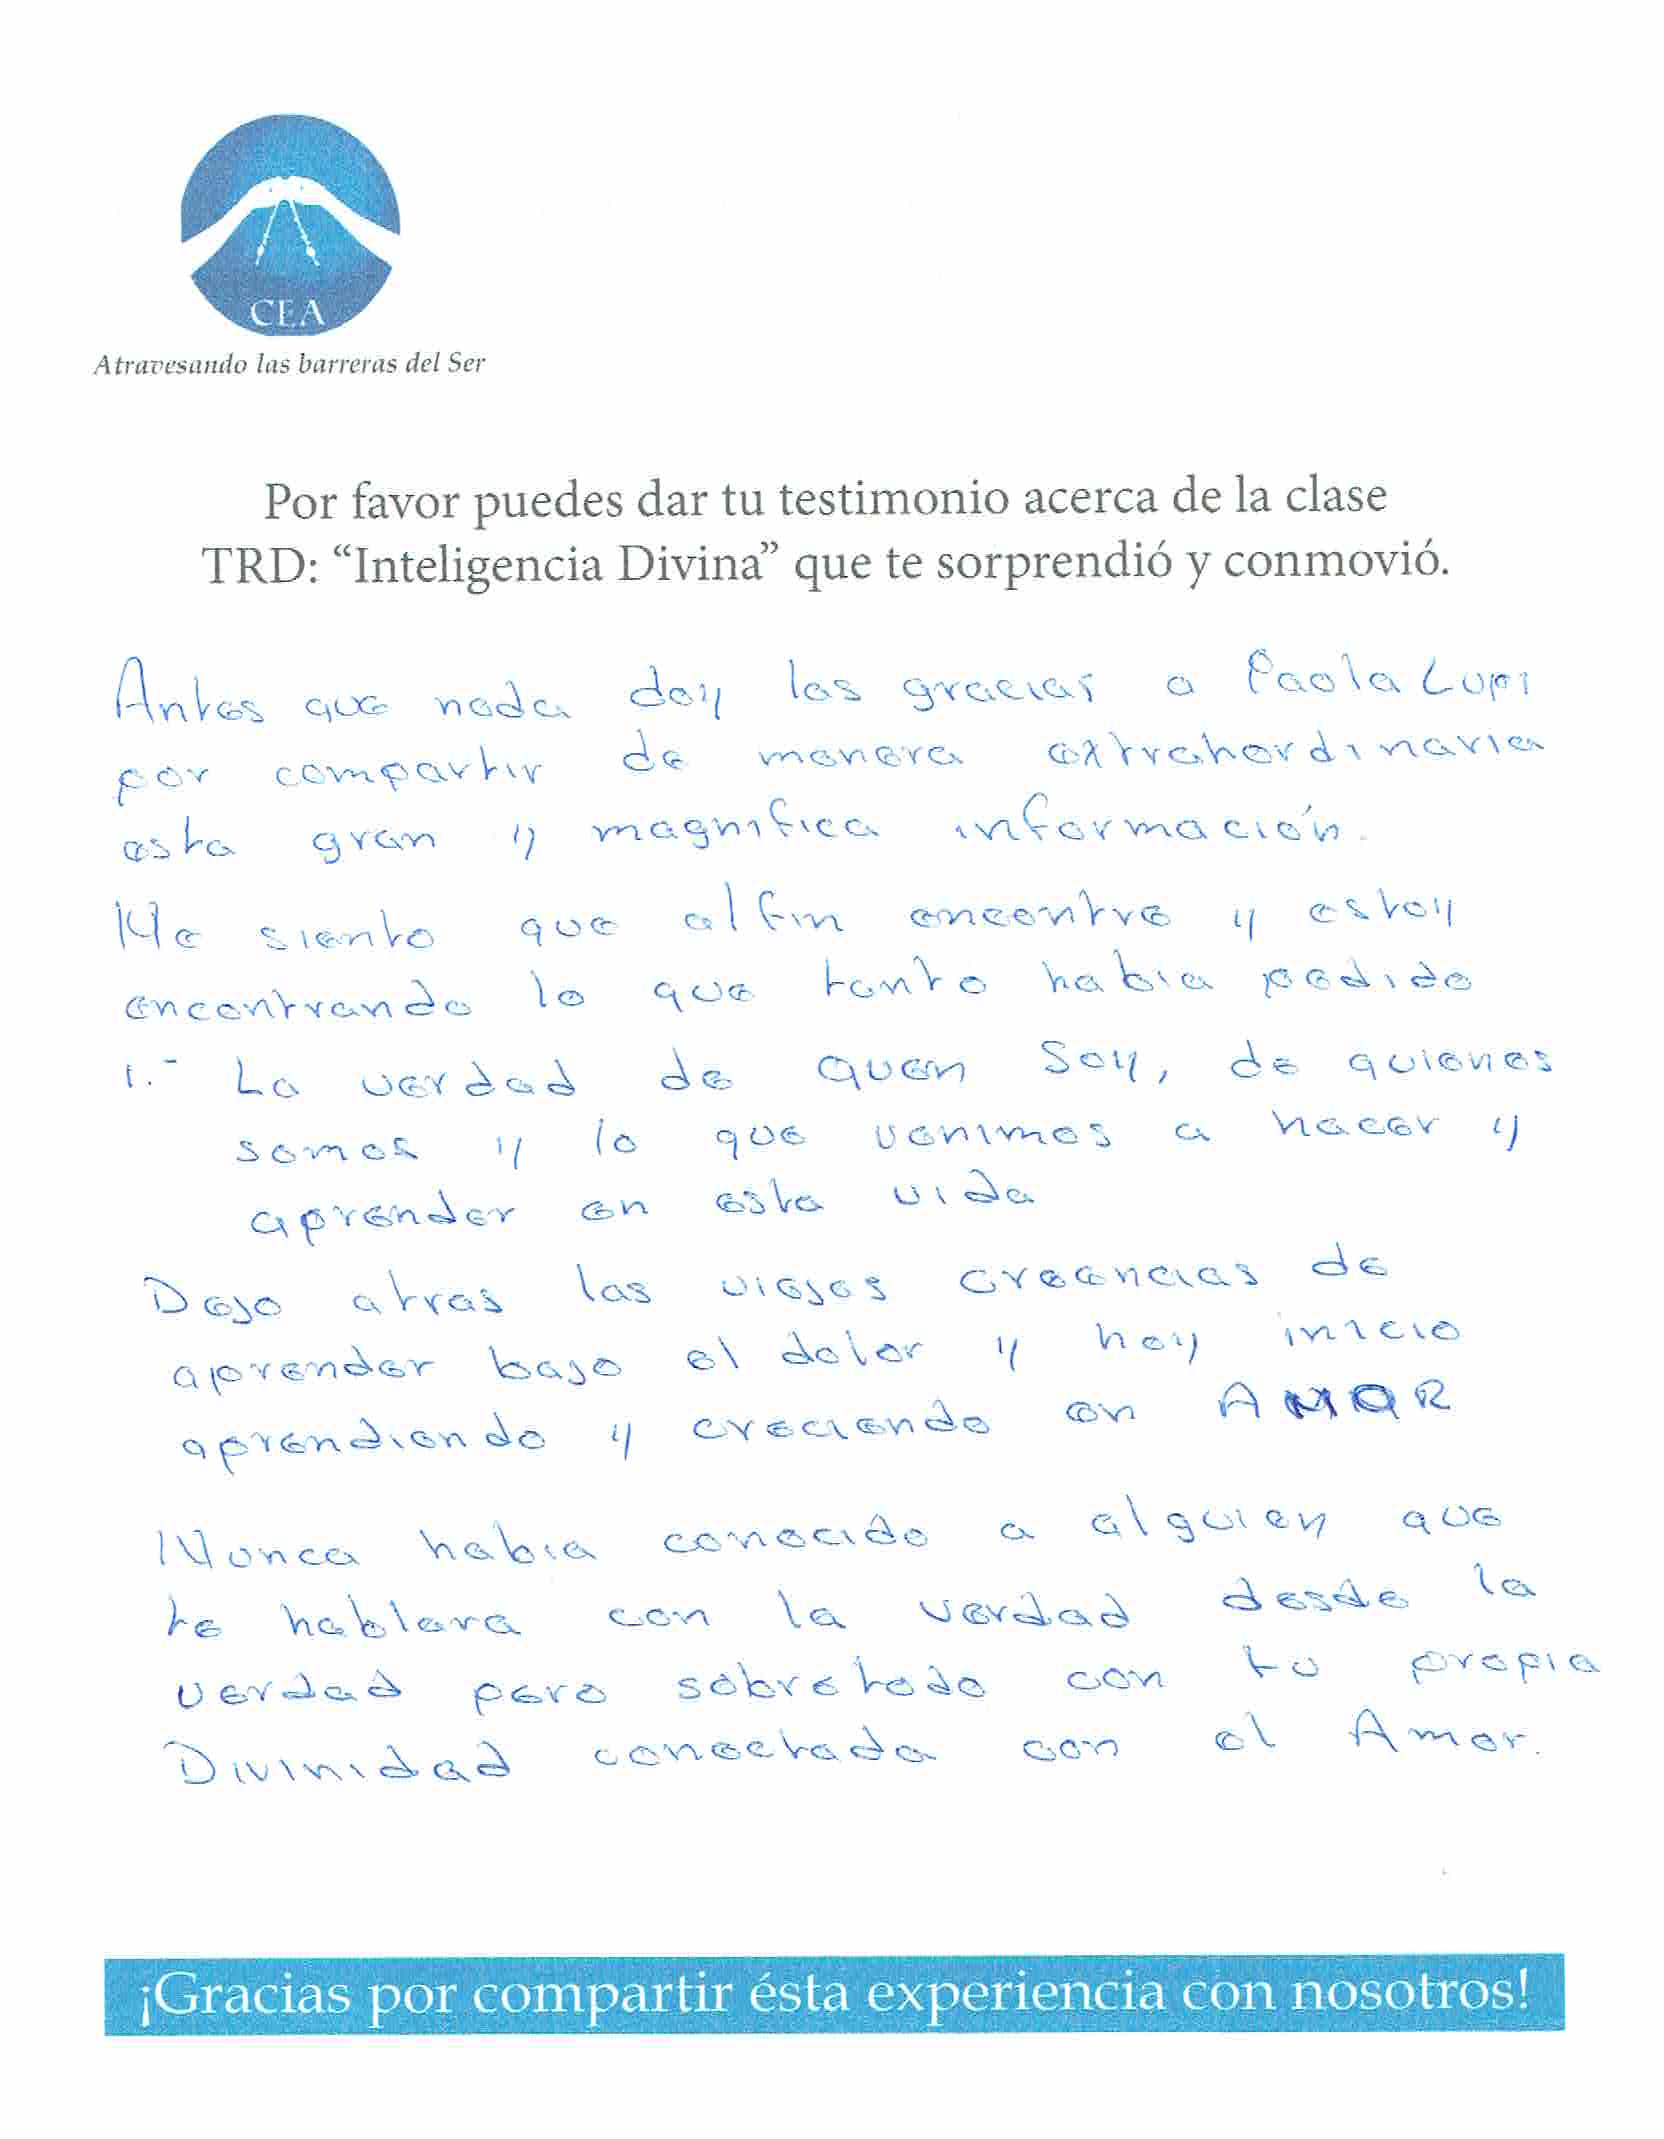 CEA
Atravesando las barreras del Ser
Por favor puedes dar tu testimonio acerca de la clase
TRD: “Inteligencia Divina” que te sorprendió y conmovió.
Antes que nada doy las gracias a Paola Lupi
por compartir de manera extrahordinaria
esta gran y magnifica información.
Me siento que al fin encontre y estoy
encontrando lo que tanto habia pedido
1.- La verdad de quen Soy, de quienes
somos y lo que venimos a hacer y
aprender en esta vida
Dejo atras las viejas creencias de
aprender bajo el dolor y hoy inicio
aprendiendo y creciendo en AMOR
Nunca habia conocido a alguien que
te hablara con la verdad desde la
verdad pero sobretodo con tu propia
Divinidad conectada con el Amor.
¡Gracias por compartir ésta experiencia con nosotros!